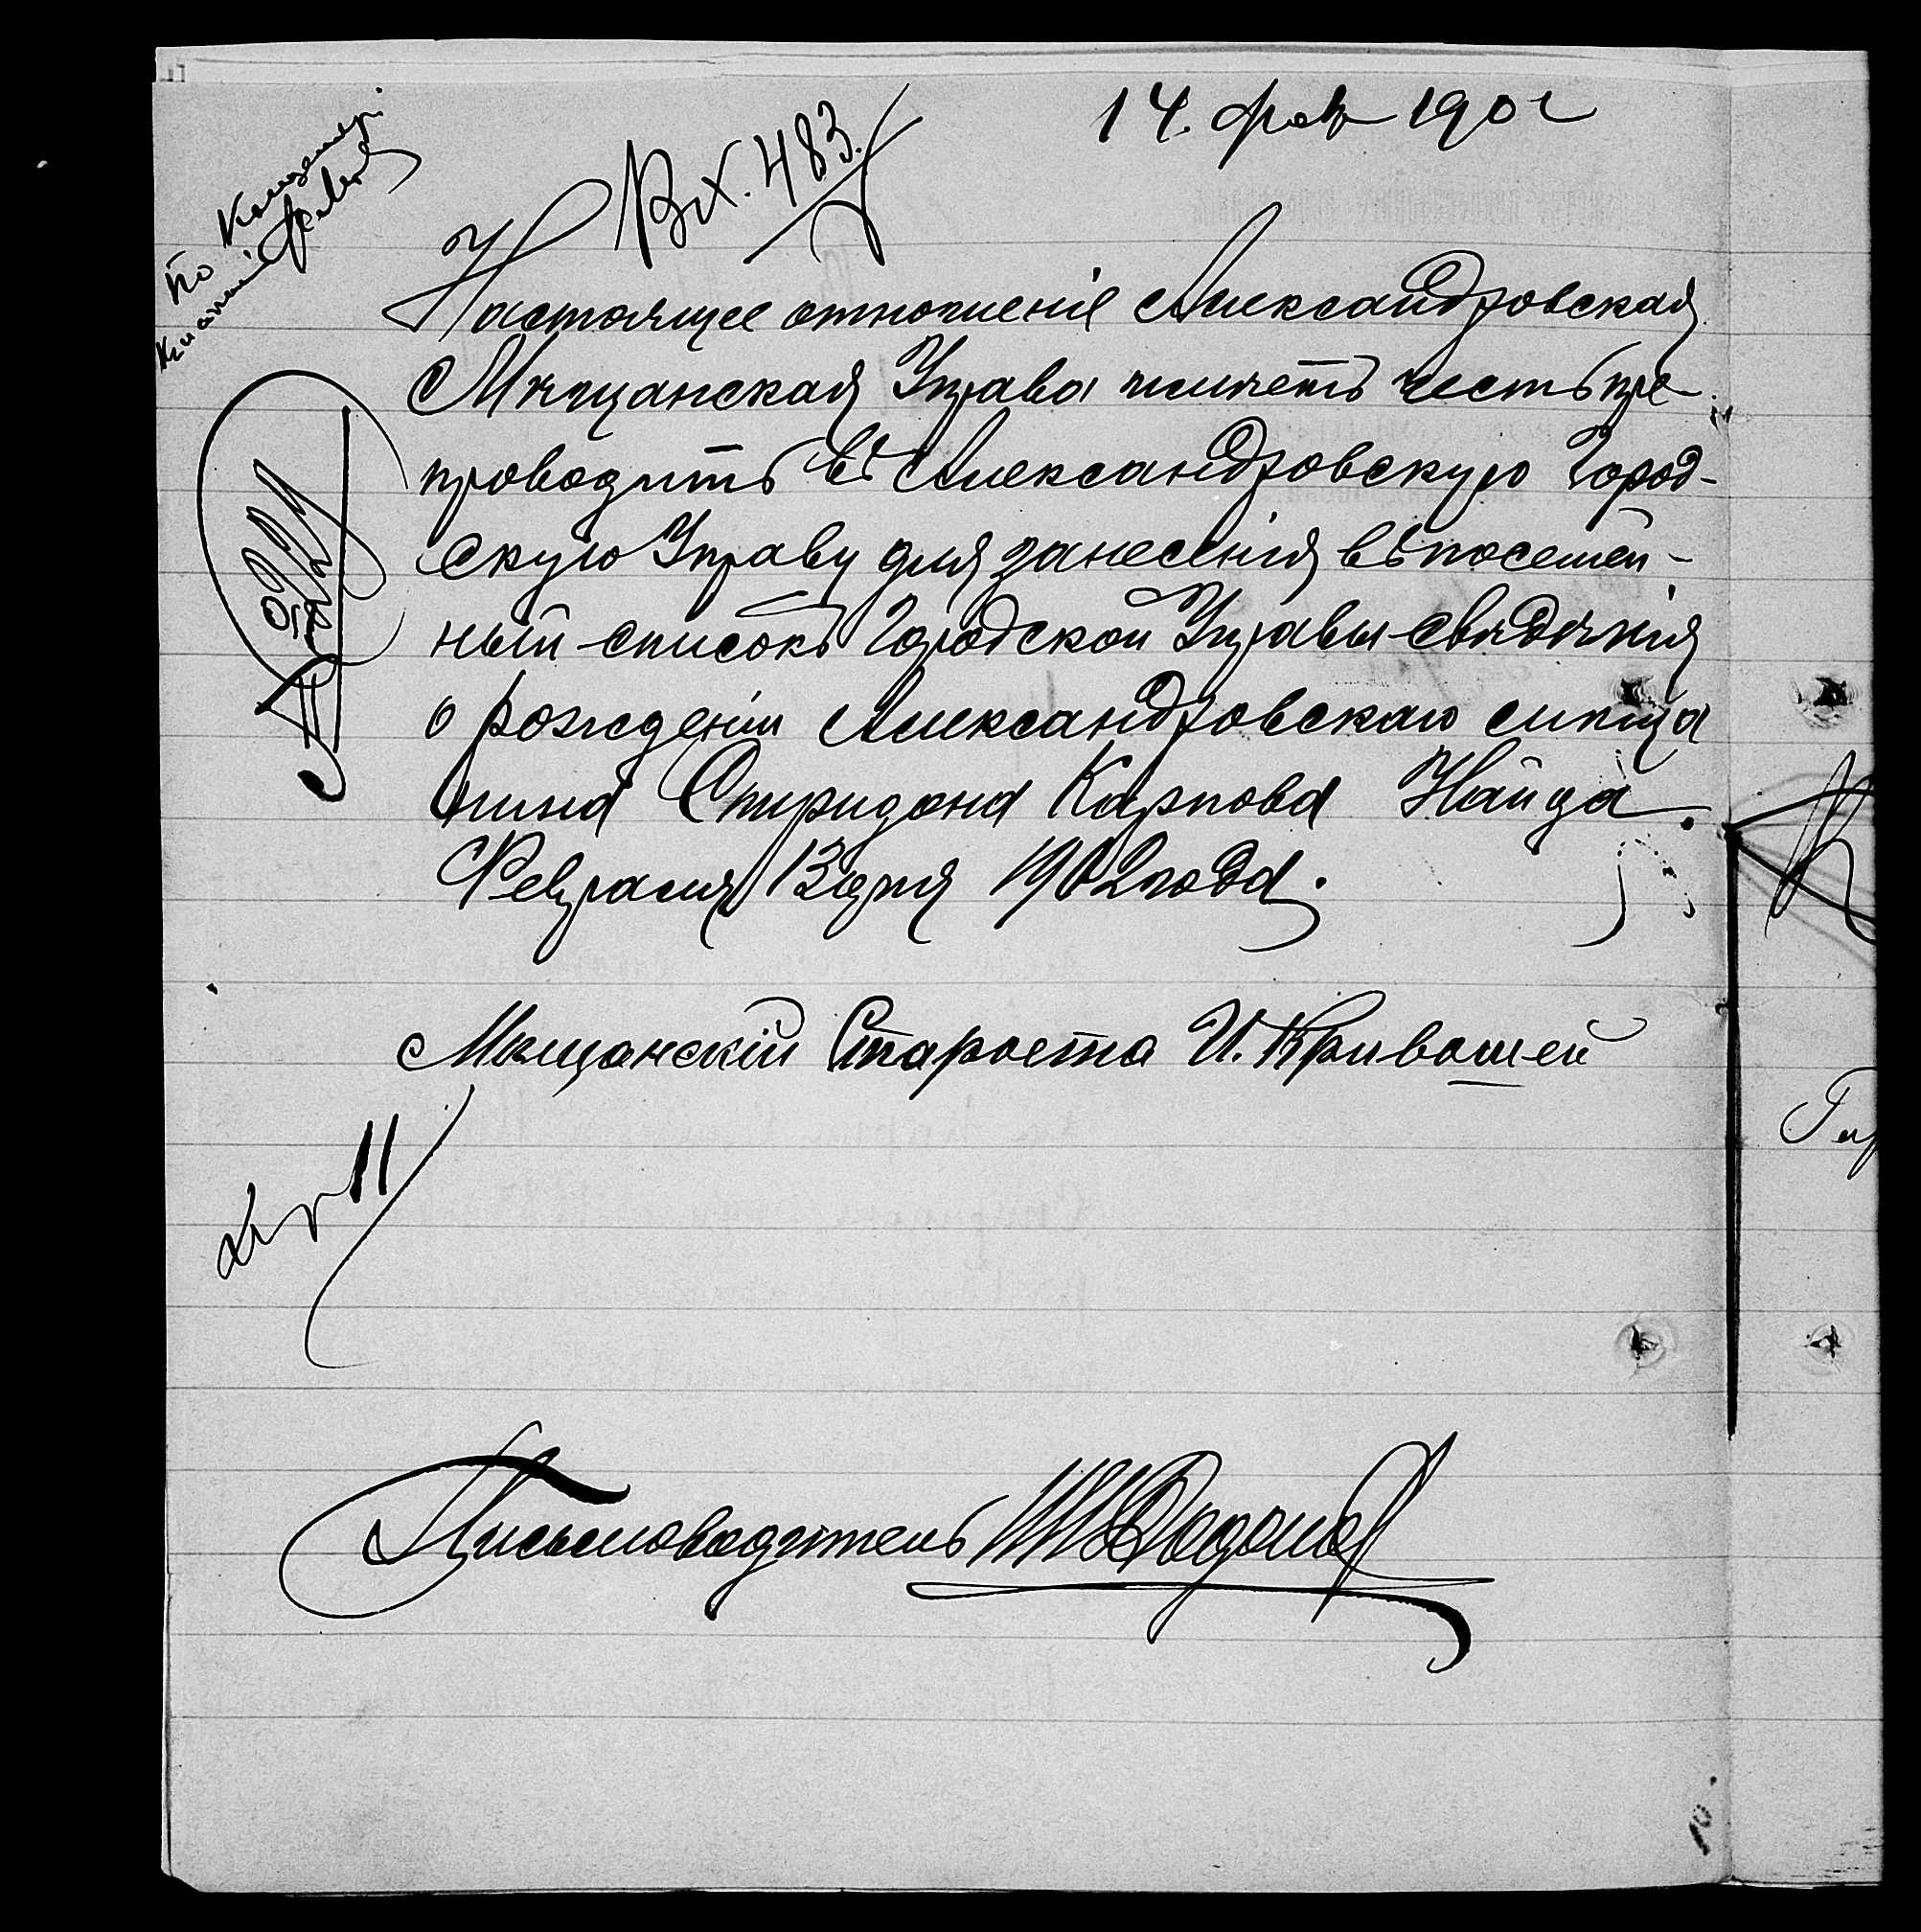 14. фев 1902
Вх. 483.
Настоящее отношеніе Александровская
Мѣщанская Управа имѣетъ честь пре-
проводить въ Александровскую Город-
скую Управу для занесенія въ посемей-
ный списокъ Городской Управы свѣдѣнія
о рожденіи Александровскаго мѣща
нина Спиридона Карпова Найда.
Февраля 13 дня 1902 года.
Мѣщанскій Староста И. Кривошей
Письмоводитель